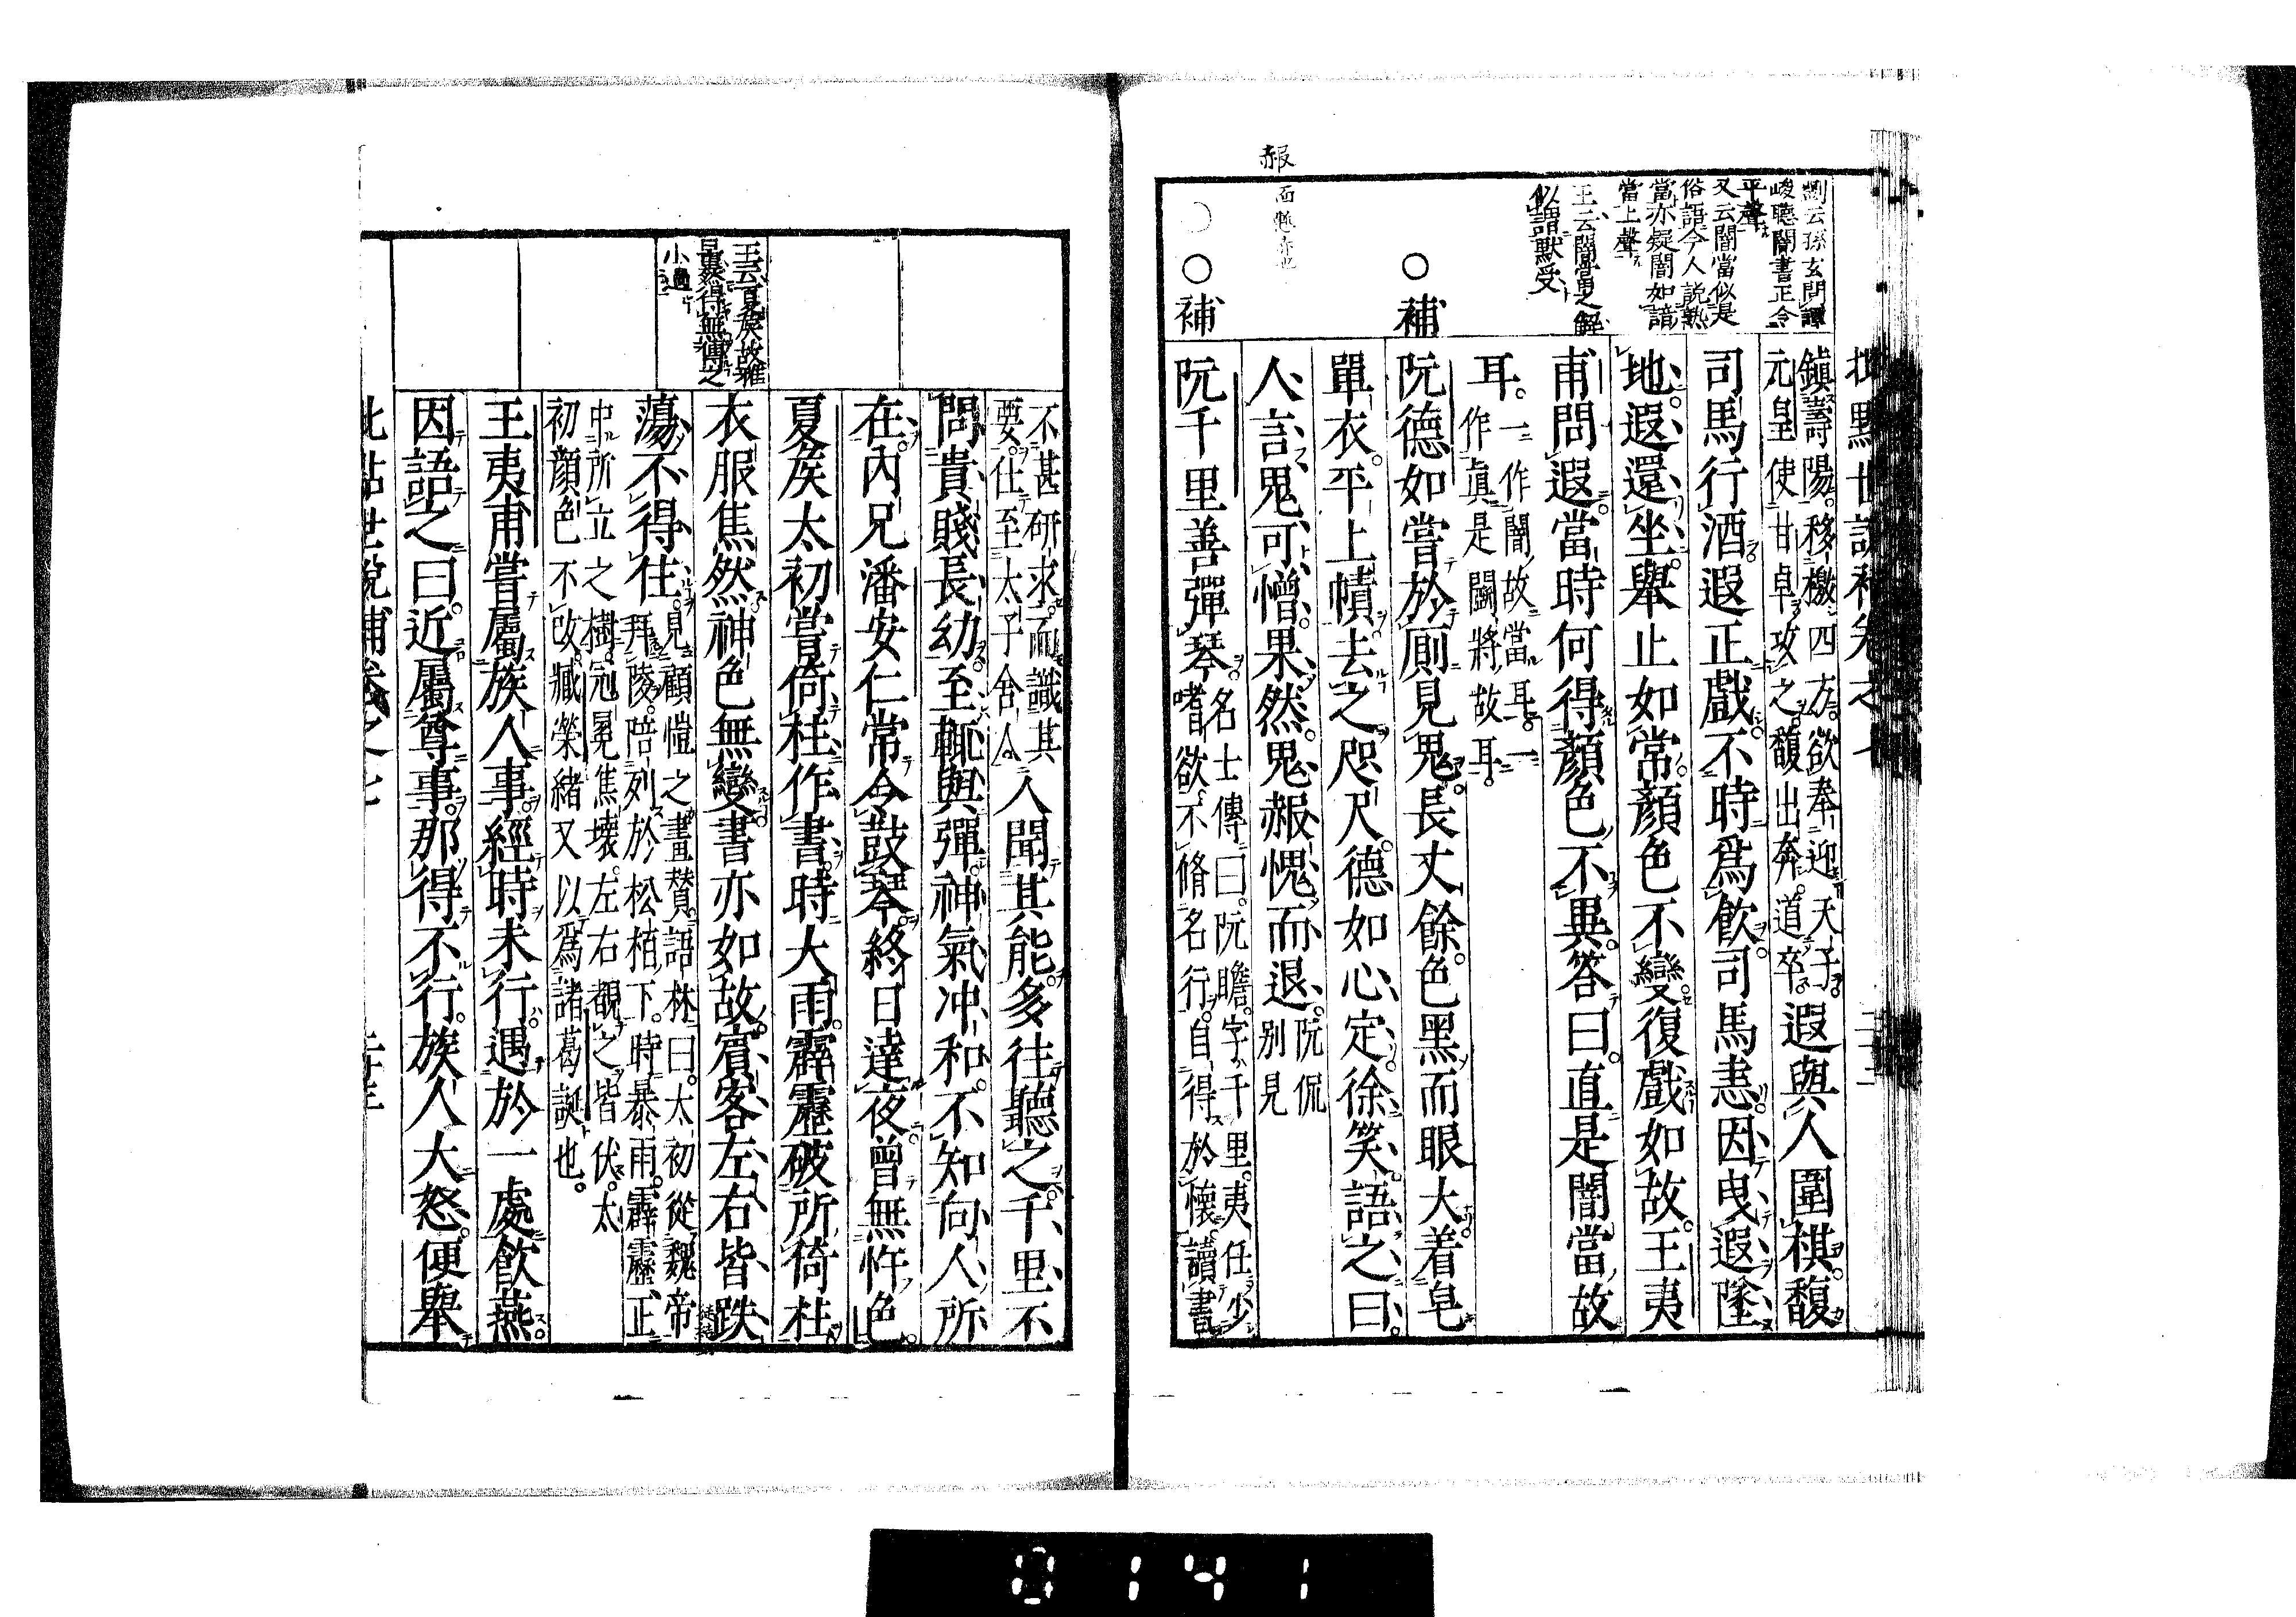 赧
面慙赤也
劉云孫玄問譚
峻聽闇書正令
平聲
又云闇當似是
俗語今人說熟
當亦疑闇如諳
當上聲
王云闇當之解
似謂默受
○補
○補
批點世說補卷之七
鎮壽陽。移檄四方。欲奉迎天子。
元皇使甘卓攻之。馥出奔。道卒。
遐與人圍棋。馥
司馬行酒。遐正戲。不時爲飲。司馬恚。因曳遐墜
地。遐還坐。舉止如常。顏色不變。復戲如故。王夷
甫問遐。當時何得顏色不異。答曰。直是闇當故
耳。
一作闇故當耳。一
作眞是鬬將故耳。
阮德如嘗於厠見鬼。長丈餘。色黑而眼大。着皂
單衣。平上幘。去之咫尺。德如心定。徐笑語之曰。
人言鬼可憎。果然。鬼赧愧而退。
阮侃
别見
阮千里善彈琴。
名士傳曰。阮瞻。字千里。夷任少
嗜欲。不脩名行。自得於懷。讀書
不甚研求。而識其
要。仕至太子舍人。
人聞其能。多往聽之。千里不
問貴賤長幼。至輒與彈。神氣冲和。不知向人所
在。内兄潘安仁常令鼓琴。終日達夜。曾無忤色。
夏矦太初嘗倚柱作書。時大雨。霹靂破所倚柱。
衣服焦然。神色無變。書亦如故。賓客左右。皆跌
蕩不得住。
見顧愷之畫贊。語林曰。太初從魏帝
拜陵。陪列於松栢下。時暴雨。霹靂正
中所立之樹。冠冕焦壞。左右覩之皆伏。太
初顏色不改。臧榮緒又以爲諸葛誕也。
王夷甫嘗屬族人事。經時未行。遇於一處飲燕。
因語之曰。近屬尊事。那得不行。族人大怒。便舉
王云夏矦故雅
量奚得無傳之
小過
批點世說補卷之七
0141